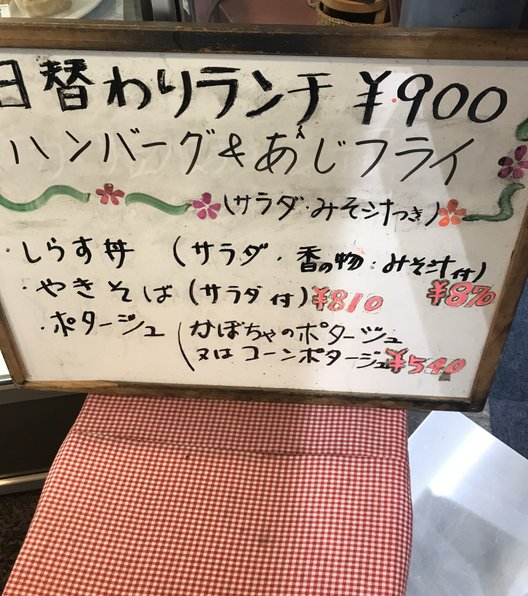 日替わりランチ ¥900
ハンバーグ&あじフライ
(サラダ・みそ汁つき)
・しらす丼 (サラダ・香の物・みそ汁付)
¥870
・やきそば(サラダ付) ¥810
・ポタージュ (かぼちゃのポタージュ
又はコーンポタージュ ¥540